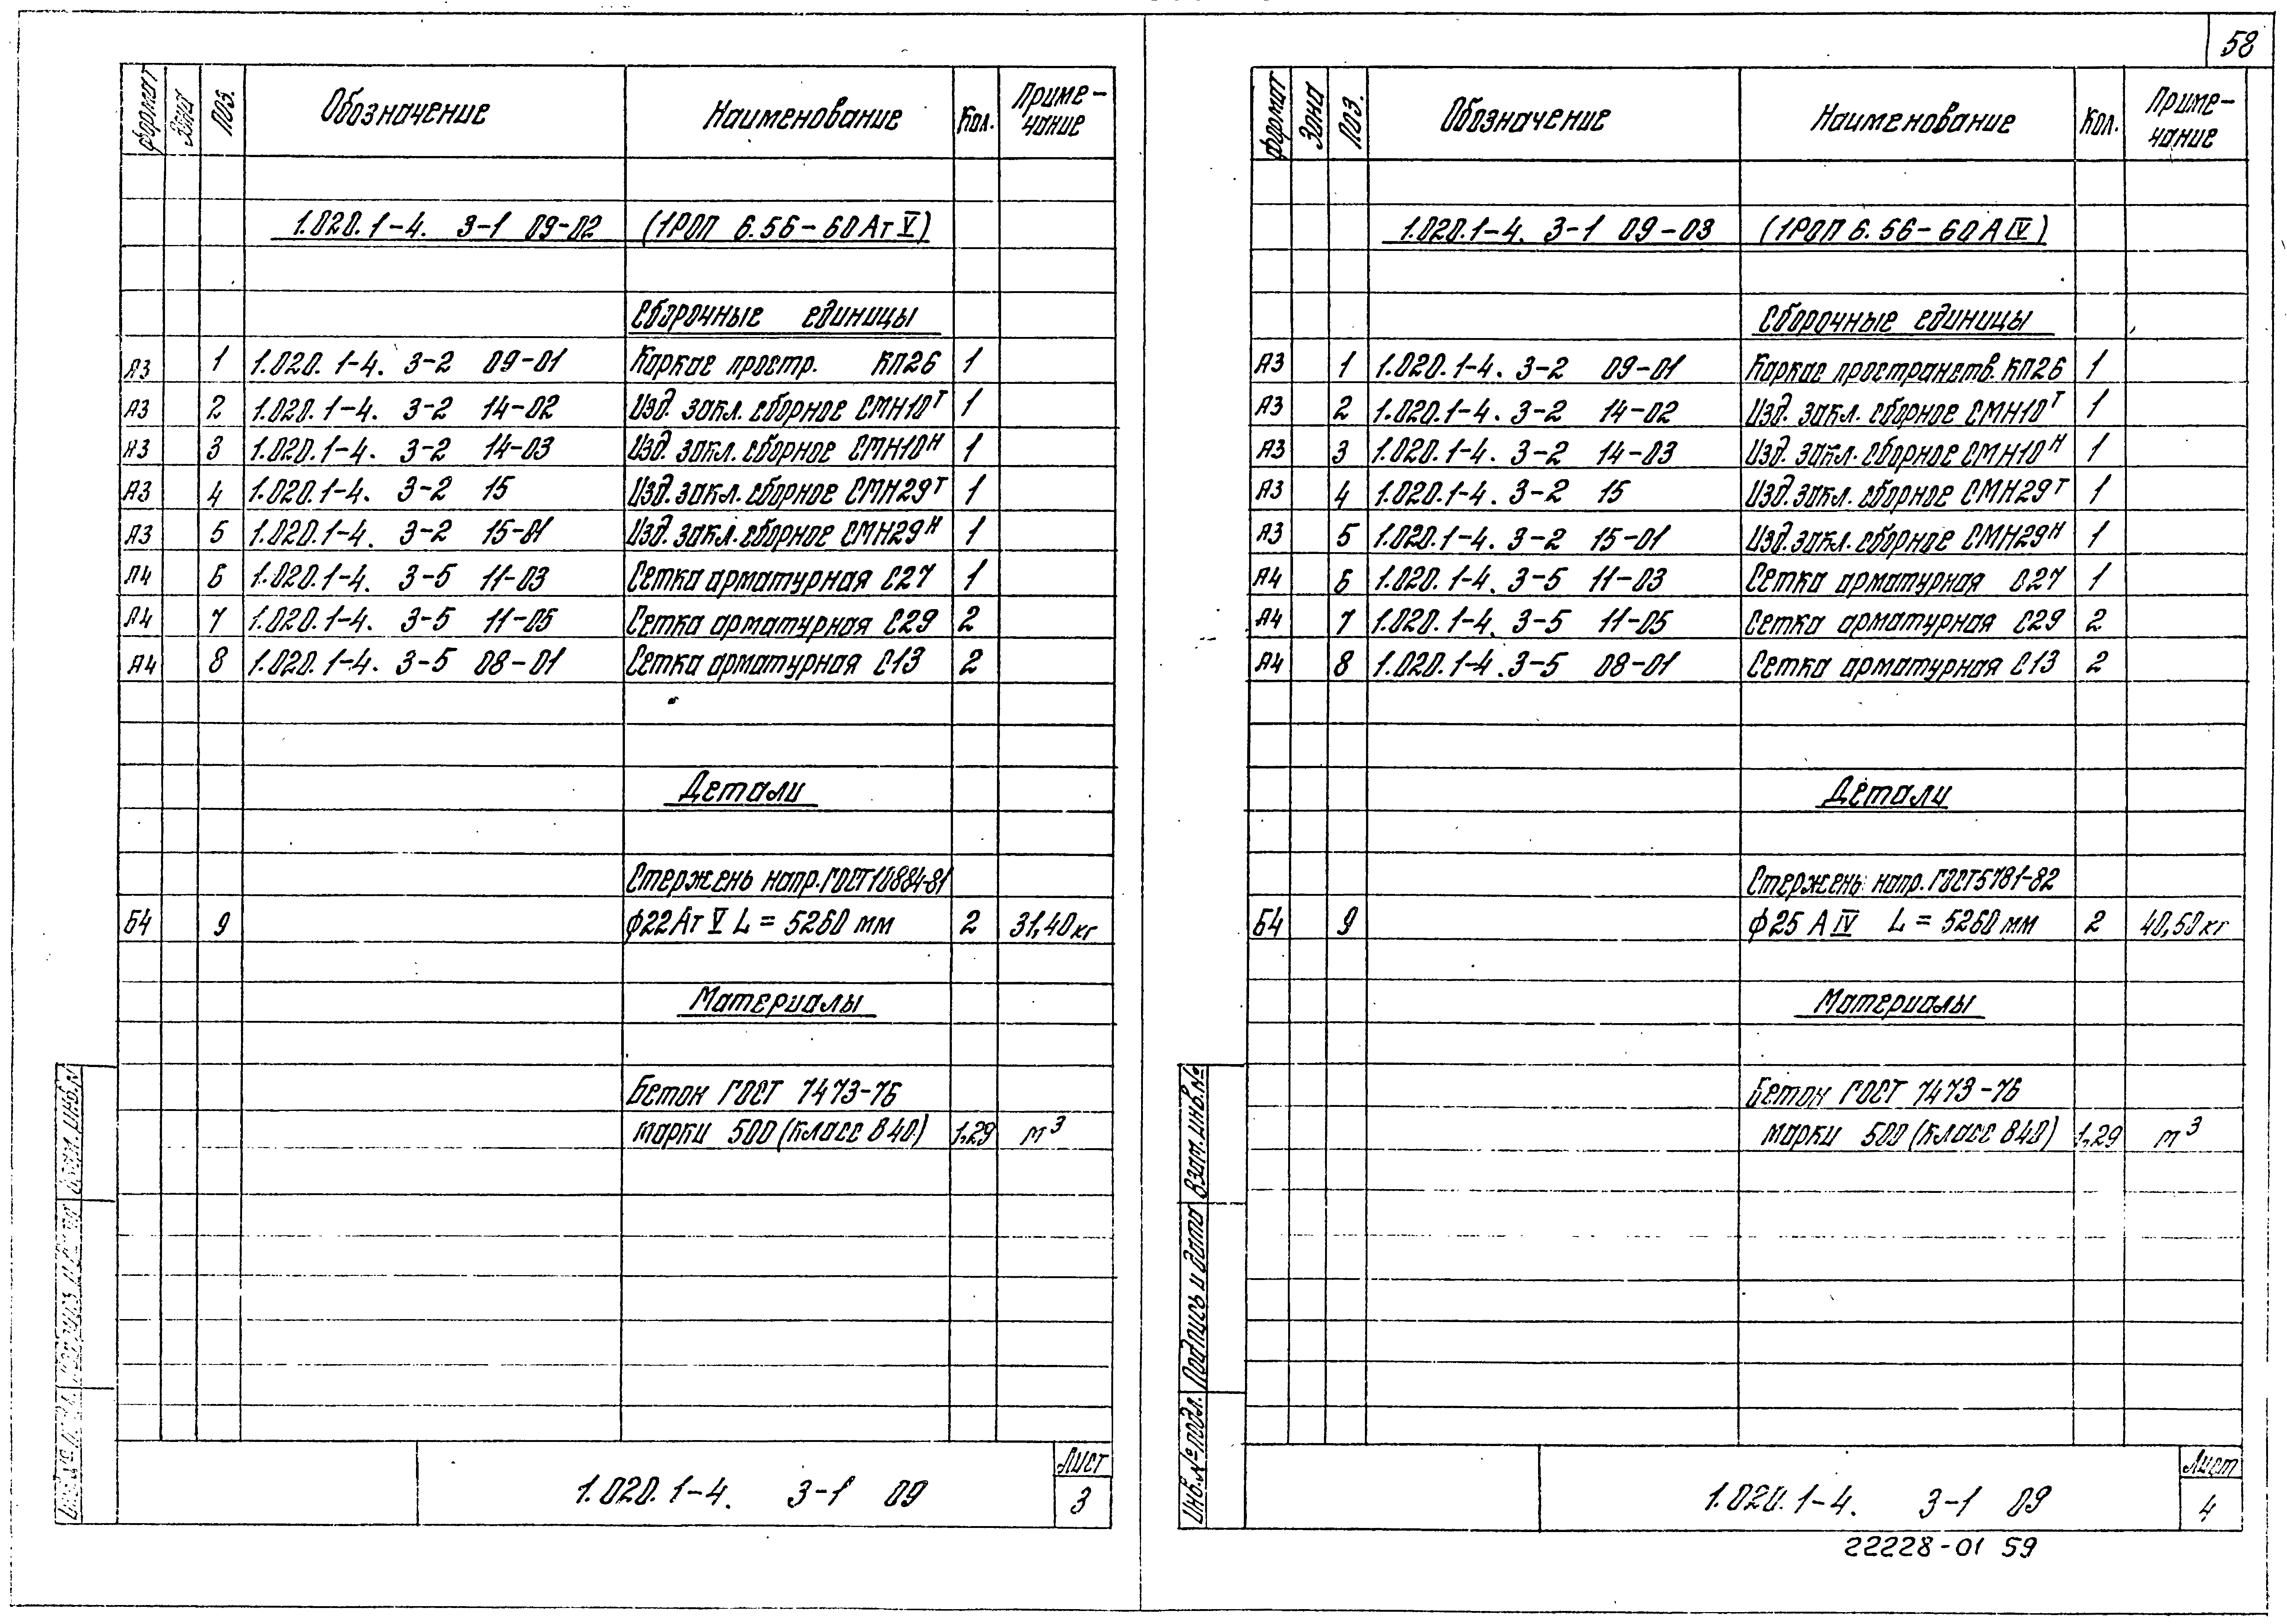 58
Формат Зона Поз. Обозначение Наименование Кол. Приме-чание
1.020.1-4. 3-1 09-02 (1РОП 6.56-60 Ат V)
Сборочные единицы
А3 1 1.020.1-4. 3-2 09-01 Каркас простр. КП26 1
А3 2 1.020.1-4. 3-2 14-02 Изд. закл. сборное СМН10Т 1
А3 3 1.020.1-4. 3-2 14-03 Изд. закл. сборное СМН10Н 1
А3 4 1.020.1-4. 3-2 15 Изд. закл. сборное СМН29Т 1
А3 5 1.020.1-4. 3-2 15-01 Изд. закл. сборное СМН29Н 1
А4 6 1.020.1-4. 3-5 11-03 Сетка арматурная С27 1
А4 7 1.020.1-4. 3-5 11-05 Сетка арматурная С29 2
А4 8 1.020.1-4. 3-5 08-01 Сетка арматурная С13 2
Детали
Стержень напр. ГОСТ 10884-81
Б4 9 ф22 Ат V L = 5260 мм 2 31,40 кг
Материалы
Бетон ГОСТ 7473-76
марки 500 (класс В40) 1,29 м³
1.020.1-4. 3-1 09
Лист
3
Формат Зона Поз. Обозначение Наименование Кол. Приме-чание
1.020.1-4. 3-1 09-03 (1РОП 6.56-60 А IV)
Сборочные единицы
А3 1 1.020.1-4. 3-2 09-01 Каркас пространств. КП26 1
А3 2 1.020.1-4. 3-2 14-02 Изд. закл. сборное СМН10Т 1
А3 3 1.020.1-4. 3-2 14-03 Изд. закл. сборное СМН10Н 1
А3 4 1.020.1-4. 3-2 15 Изд. закл. сборное СМН29Т 1
А3 5 1.020.1-4. 3-2 15-01 Изд. закл. сборное СМН29Н 1
А4 6 1.020.1-4. 3-5 11-03 Сетка арматурная С27 1
А4 7 1.020.1-4. 3-5 11-05 Сетка арматурная С29 2
А4 8 1.020.1-4. 3-5 08-01 Сетка арматурная С13 2
Детали
Стержень напр. ГОСТ 5781-82
Б4 9 ф25 А IV L = 5260 мм 2 40,50 кг
Материалы
Бетон ГОСТ 7473-76
марки 500 (класс В40) 1,29 м³
Инв. № подл. Подпись и дата Взам. инв. №
1.020.1-4. 3-1 09
Лист
4
22228-01 59